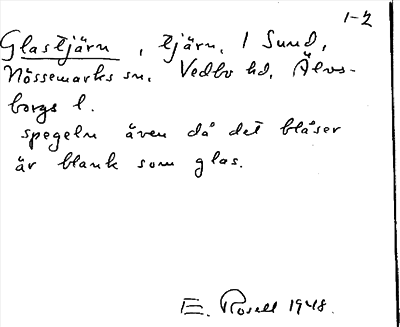 1-2
Glastjärn, tjärn, 1 Sund,
Nössemarks sn. Vedbo hd, Älvs-
borgs l.
spegeln även då det blåser
är blank som glas.
E. Rosell 1948.